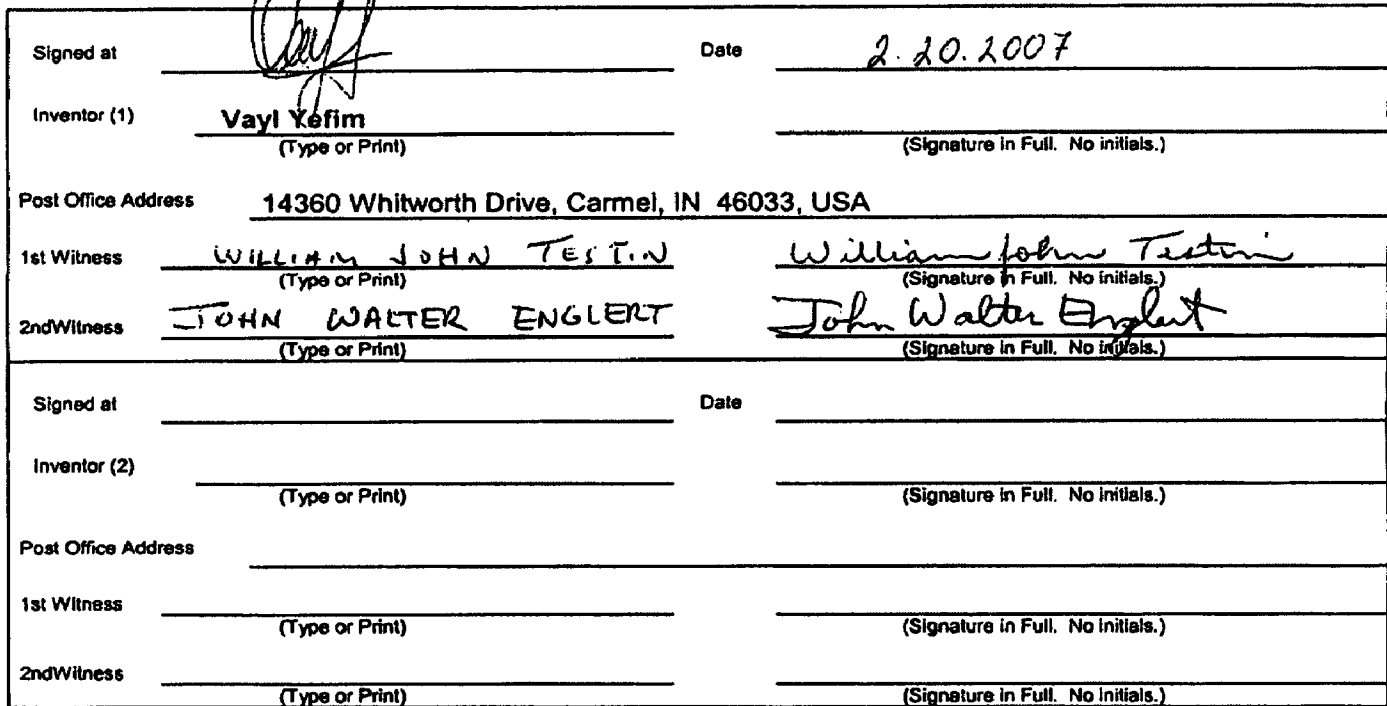 Signed at Date 2.20.2007
Inventor (1) Vayl Yefim
(Type or Print) (Signature in Full. No initials.)
Post Office Address 14360 Whitworth Drive, Carmel, IN 46033, USA
1st Witness WILLIAM JOHN TESTIN William John Testin
(Type or Print) (Signature in Full. No initials.)
2ndWitness JOHN WALTER ENGLERT John Walter Englert
(Type or Print) (Signature in Full. No initials.)
Signed at Date
Inventor (2)
(Type or Print) (Signature in Full. No initials.)
Post Office Address
1st Witness
(Type or Print) (Signature in Full. No initials.)
2ndWitness
(Type or Print) (Signature in Full. No initials.)